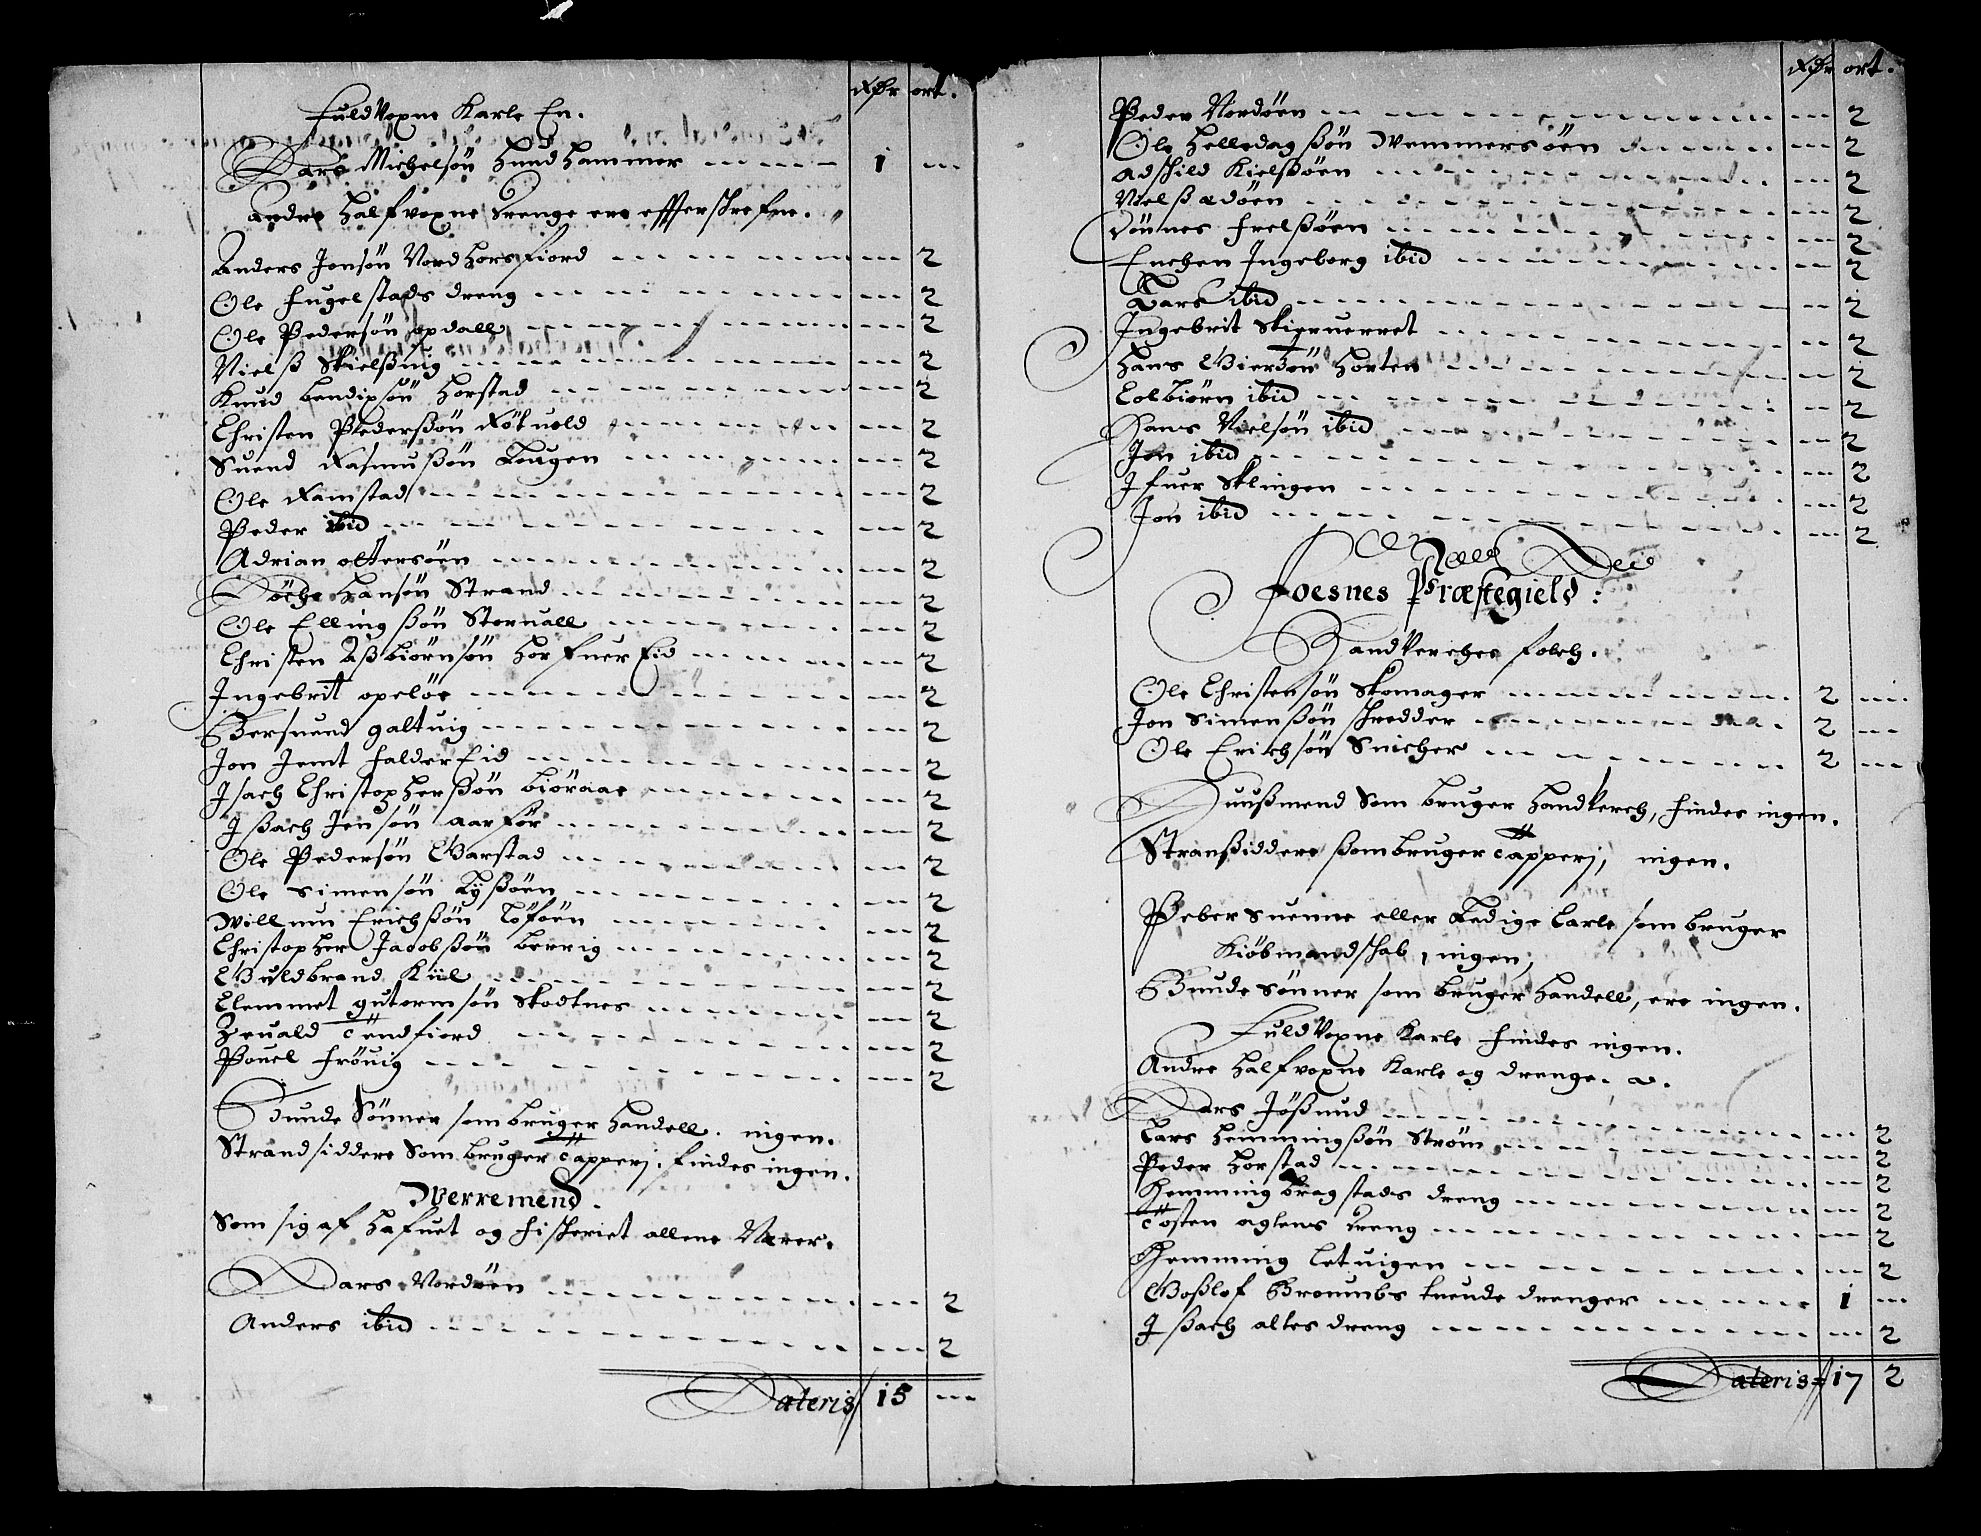 Rdr ort.
Fuldvoxne Karle En.
Lars Michelsøn Hundhammer --- 1 ---
Andre halfvoxne Drenge ere effterschrefne.
Anders Jonsøn Nordhorsfiord --- 2
Ole Fugelstads dreng --- 2
Ole Pedersøn opdall --- 2
Nielß Skielßuig --- 2
Knud Bendixsøn Horstad --- 2
Christen Pederßøn Røtuold --- 2
Suend Rasmußøn Lougen --- 2
Ole Ramstad --- 2
Peder ibid --- 2
Adrian ottersøen --- 2
Døche Hansøn Strand --- 2
Ole Ellingßøn Storuall --- 2
Christen Aßbiørnsøn Horfuereid --- 2
Ingebrit opeløe --- 2
Bersuend galtuig --- 2
Jon Jemt Faldereid --- 2
Isach Christopherßøn biøraae --- 2
Ißach Jensøn aarfør --- 2
Ole Pedersøn Garstad --- 2
Ole Simensøn Lyßøen --- 2
Willum Erichßøn Løføen --- 2
Christopher Jacobßøn berrig --- 2
Guldbrand Kiil --- 2
Clemmet gutormsøn Skodtnes --- 2
Heuald Tendfiord --- 2
Pouel Frøuig --- 2
Bunde Sønner som bruger Handell. ingen.
Strandsiddere som bruger Tapperj. findes ingen.
Werremend.
Som sig af Hafuet og Fischeriet allene Nærer.
Lars Nordøen --- 2
Anders ibid --- 2
Lateris 15 ---
Rdr ort.
Peder Nordøen --- 2
Ole Helledagßøn Wemmersøen --- 2
Adschild Kielßøen --- 2
Nielß Adøen --- 2
Dønnes Frelßøen --- 2
Enchen Ingeborg ibid --- 2
Lars ibid --- 2
Ingebrit Skieruerret --- 2
Hans Gierdøn Horten --- 2
Colbiørn ibid --- 2
Hans Nielsøn ibid --- 2
Jon ibid --- 2
Ifuer Sklingen --- 2
Jon ibid --- 2
Foesnes Præstegield:
Handverches Folch.
Ole Christensøn Skomager --- 2 ---
Jon Simenßøn Schredder --- 2 ---
Ole Erichsøn Snicher --- 2 ---
Huußmend Som bruger Handverch, findes ingen.
Stranßiddere ßom bruger Tapperj, ingen.
Pebersuenne eller Ledige Carle som bruger
Kiøbmandschab, ingen,
Bunde Sønner som bruger Handell, ere ingen.
Fuldvoxne Karle findes ingen.
Andre halfvoxne Karle og drenge.
Lars Jøßund --- 2
Lars Hemmingßøn Strøm --- 2
Peder Horstad --- 2
Hemming Dragstads dreng --- 2
Tosten aglens Dreng --- 2
Hemming Letuigen --- 2
Goßlof Broumbs tuende drenger --- 1 ---
Ißach altes dreng --- 2
Lateris 17 2